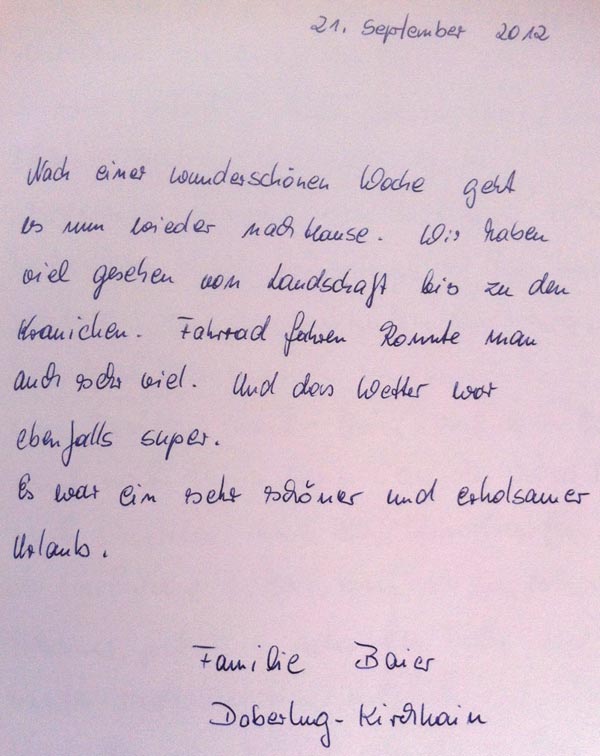 21. September 2012
Nach einer wunderschönen Woche geht
es nun wieder nach Hause. Wir haben
viel gesehen von Landschaft bis zu den
Kranichen. Fahrrad fahren konnte man
auch sehr viel. Und das Wetter war
ebenfalls super.
Es war ein sehr schöner und erholsamer
Urlaub.
Familie Baier
Doberlug-Kirchhain